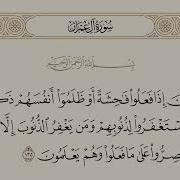 سُورَةُ آلِ عِمْرَانَ
بِسْمِ اللَّهِ الرَّحْمَٰنِ الرَّحِيمِ
نَ إِذَا فَعَلُوا۟ فَٰحِشَةً أَوْ ظَلَمُوٓا۟ أَنفُسَهُمْ ذَكَ
سْتَغْفَرُوا۟ لِذُنُوبِهِمْ وَمَن يَغْفِرُ ٱلذُّنُوبَ إِلَّا
صِرُّوا۟ عَلَىٰ مَا فَعَلُوا۟ وَهُمْ يَعْلَمُونَ ١٣٥